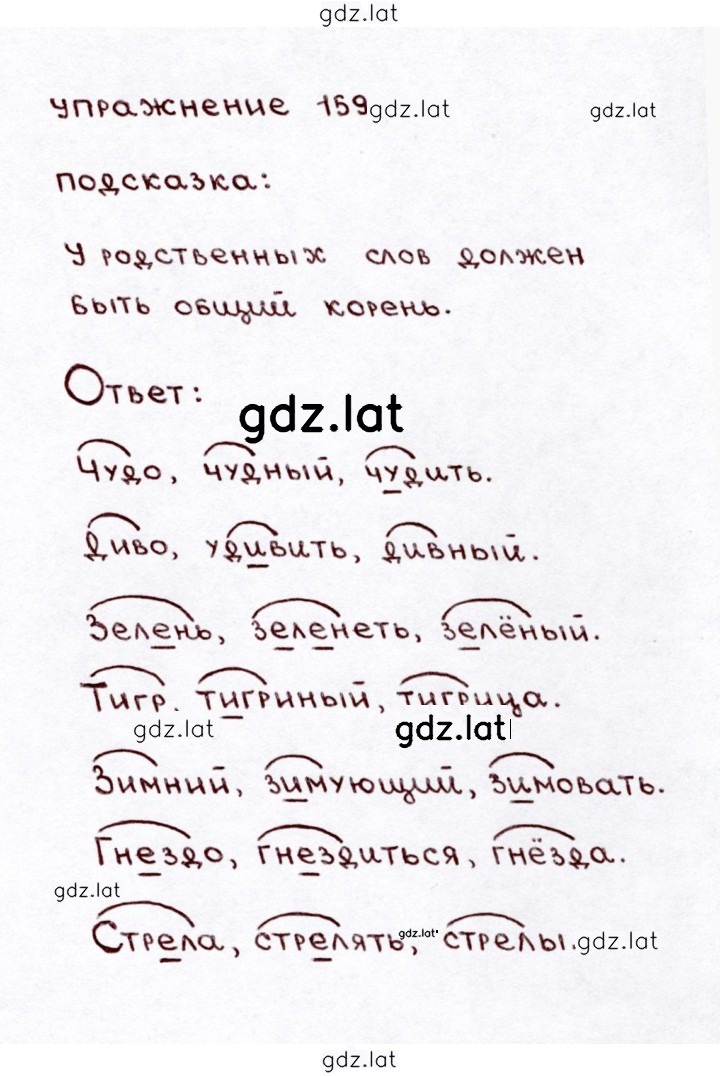 gdz.lat
упражнение 159 gdz.lat gdz.lat
подсказка:
У родственных слов должен
быть общий корень.
Ответ:
gdz.lat
Чудо, чудный, чудить.
Диво, удивить, дивный.
Зелень, зеленеть, зелёный.
Тигр. тигриный, тигрица.
gdz.lat gdz.lat
Зимний, зимующий, зимовать.
Гнездо, гнездиться, гнёзда.
gdz.lat
Стрела, стрелять, gdz.lat стрелы. gdz.lat
gdz.lat